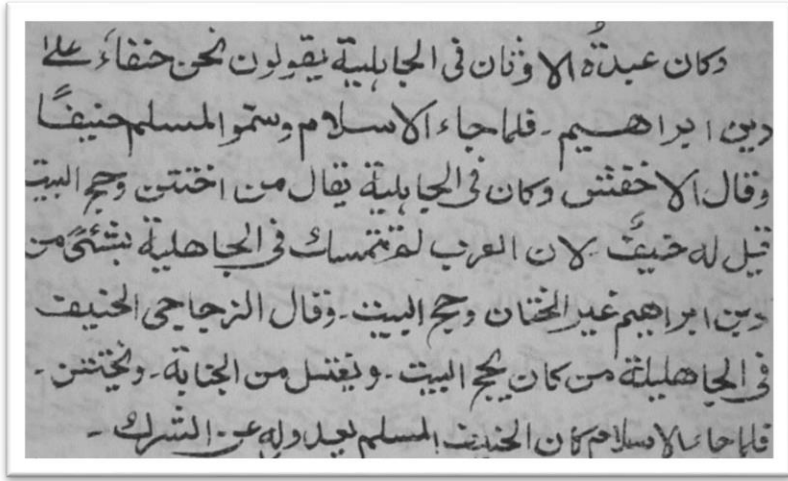 وكان عبدة الاوثان فى الجاهلية يقولون نحن حنفاء على
دين ابراهيم ـ فلما جاء الاسلام وسموا المسلم حنيفًا
وقال الاخفش وكان فى الجاهلية يقال من اختتن وحج البيت
قيل له حنيف لان العرب لم تتمسك فى الجاهلية بشئ من
دين ابراهيم غير الختان وحج البيت ـ وقال الزجاجى الحنيف
فى الجاهلية من كان يحج البيت ـ ويغتسل من الجنابة ـ ويختتن ـ
فلما جاء الاسلام كان الحنيف المسلم بعدوله عن الشرك ـ